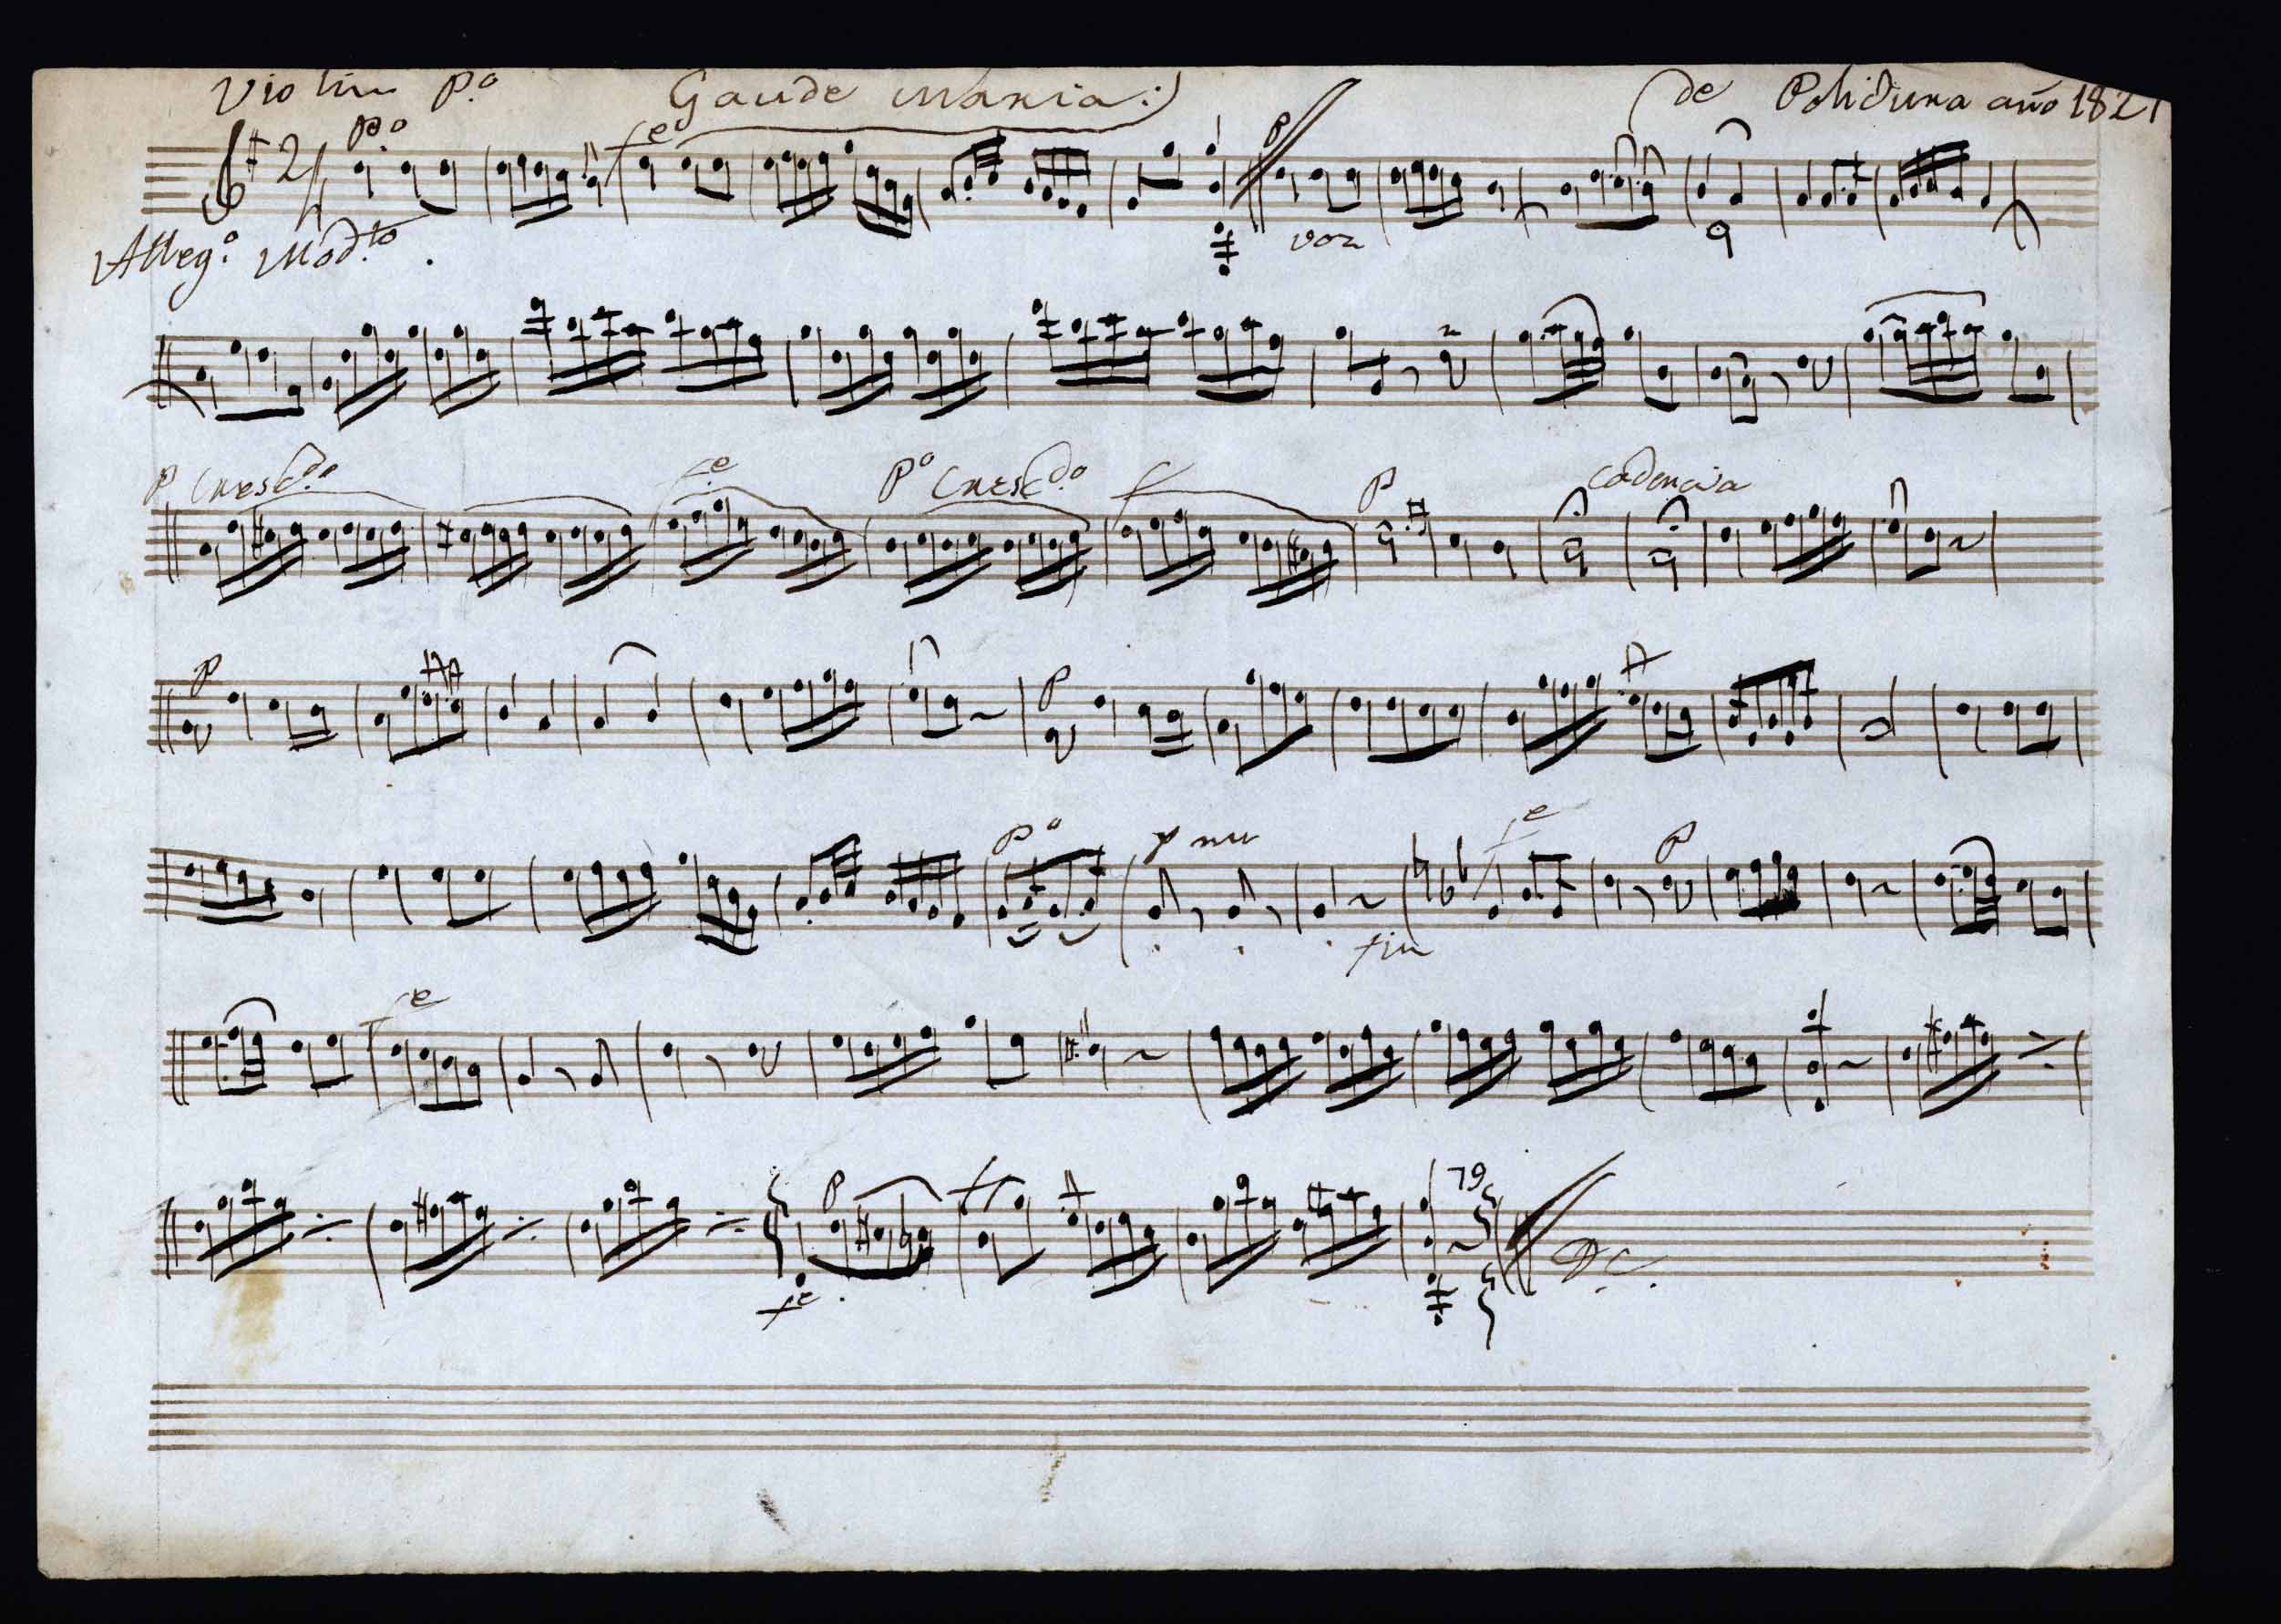 Violin P.º Gaude Maria:) de Polidura año 1821
Pº fe P
2/4
Alleg.º Mod.to voz
P Cresc.do fe Pº Cresc.do f P Cadencia
P P
Pº fe P
fin
fe
P 79
fe D.C.